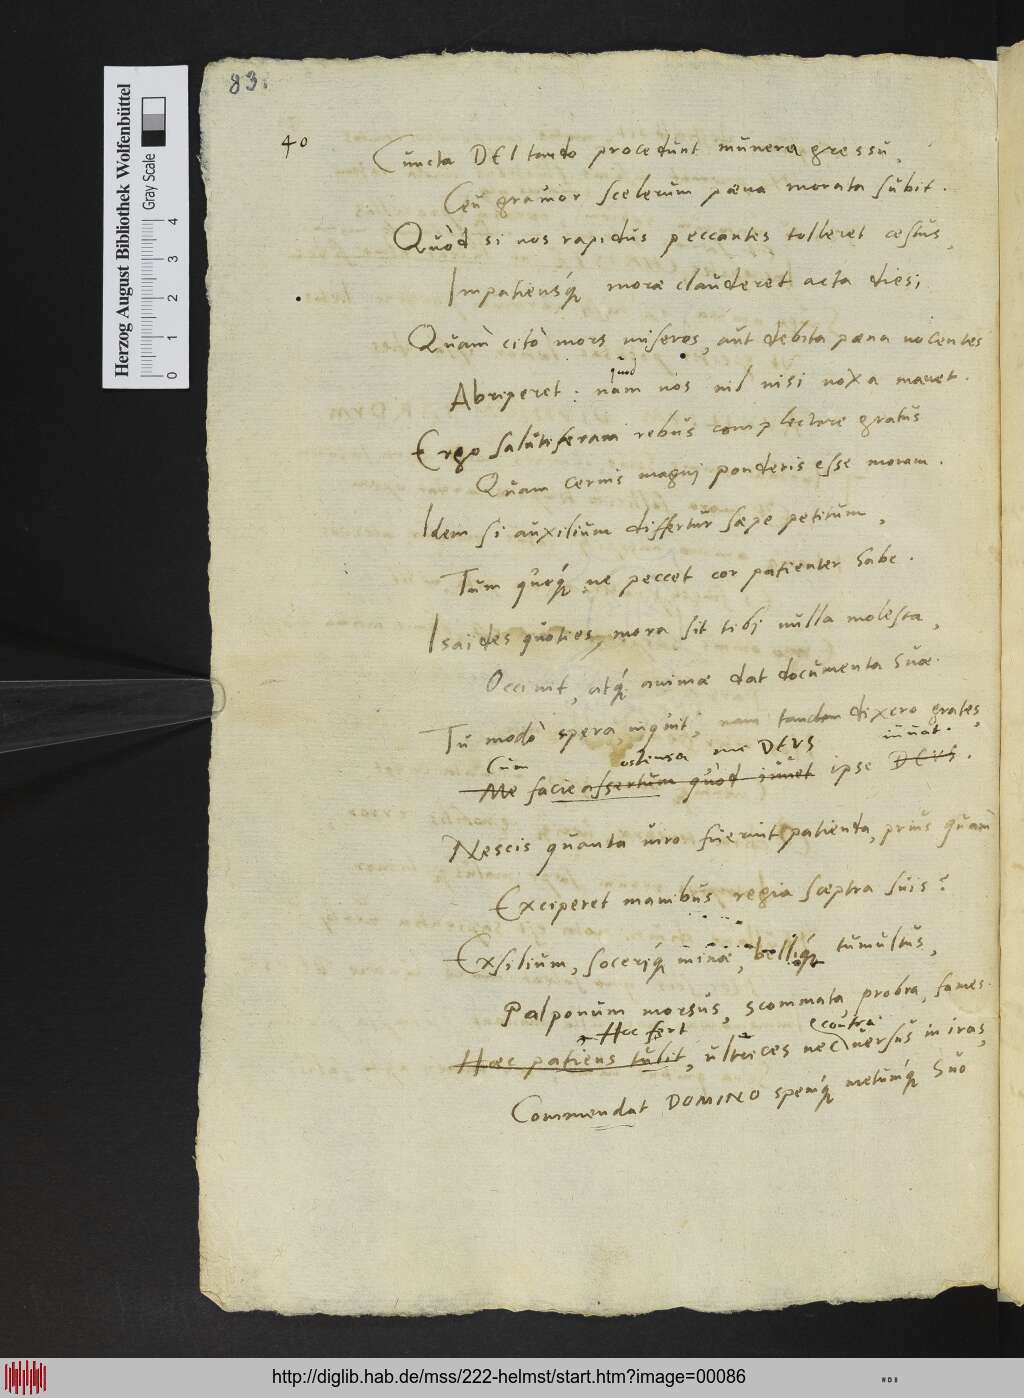 83.
40
Cuncta DEI tardo procedunt munera gressu,
Ceu gravior scelerum pœna morata subit.
Quòd si nos rapidus peccantes tolleret æstus,
Impatiensq́ moræ clauderet acta dies;
Quàm citò mors miseros, aut debita pœna nocentes
quod
Abriperet: nam nos nil nisi noxa manet.
Ergo salutiferam rebus complectere gratus
Quam cernis magni ponderis esse moram.
Idem si auxilium differtur sæpe petitum,
Tum quoq́ ne peccet cor patienter habe.
Isaides quoties, mora sit tibi nulla molesta,
Occinit, atq́ animæ dat documenta suæ.
Tu modò spera, inquit, nam tandem dixero grates,
Cum ostensa me DEUS iuvat.
Me facie assertum quòd iuvet ipse DEUS.
Nescis quanta viro fuerint patienda, prius quàm
Exciperet manibus regia sceptra suis?
Exsilium, soceriq́ minæ, belliq́ tumultus,
Palponum morsus, scommata, probra, fames.
Hæc fert contra
Hæc patiens tulit, ultrices nec versus in iras,
Commendat DOMINO spemq́ metumq́ suo
Herzog August Bibliothek Wolfenbüttel
Gray Scale
0 1 2 3 4
http://diglib.hab.de/mss/222-helmst/start.htm?image=00086